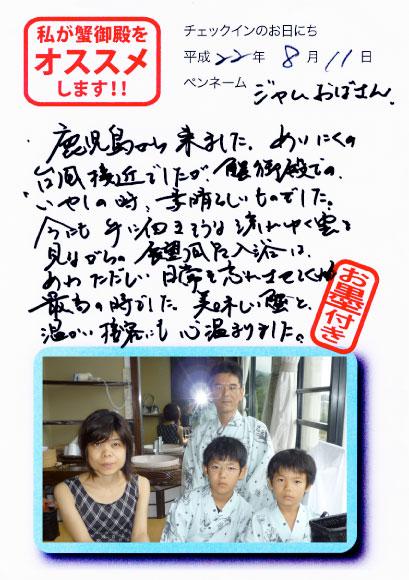 私が蟹御殿を
オススメ
します!!
チェックインのお日にち
平成22年8月11日
ペンネーム ジャムおばさん
鹿児島から来ました。あいにくの
台風接近でしたが、蟹御殿での、
いやしの時、素晴らしいものでした。
今にも手に届きそうな流れゆく雲を
見ながらの展望風呂入浴は、
あわただしい日常を忘れさせてくれ
最高の時でした。美味しい蟹と、
温かい接客にも心温まりました。
お墨付き